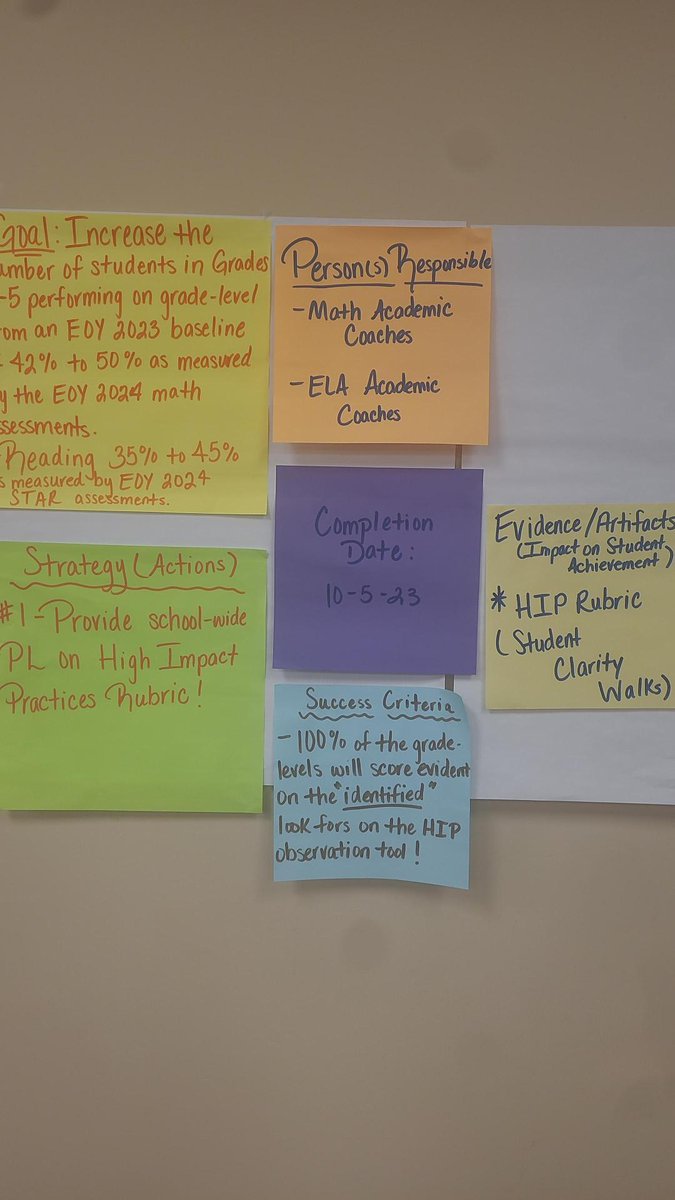 Goal: Increase the
umber of students in Grades
-5 performing on grade-level
rom an EOY 2023 baseline
42% to 50% as measured
y the EOY 2024 math
ssessments.
Reading 35% to 45%
s measured by EOY 2024
STAR assessments.
Strategy (Actions)
#1 - Provide school-wide
PL on High Impact
Practices Rubric!
Person(s) Responsible
- Math Academic
Coaches
- ELA Academic
Coaches
Completion
Date:
10-5-23
Success Criteria
- 100% of the grade-
levels will score evident
on the "identified"
look fors on the HIP
observation tool!
Evidence/Artifacts
(Impact on Student
Achievement)
* HIP Rubric
(Student
Clarity
Walks)